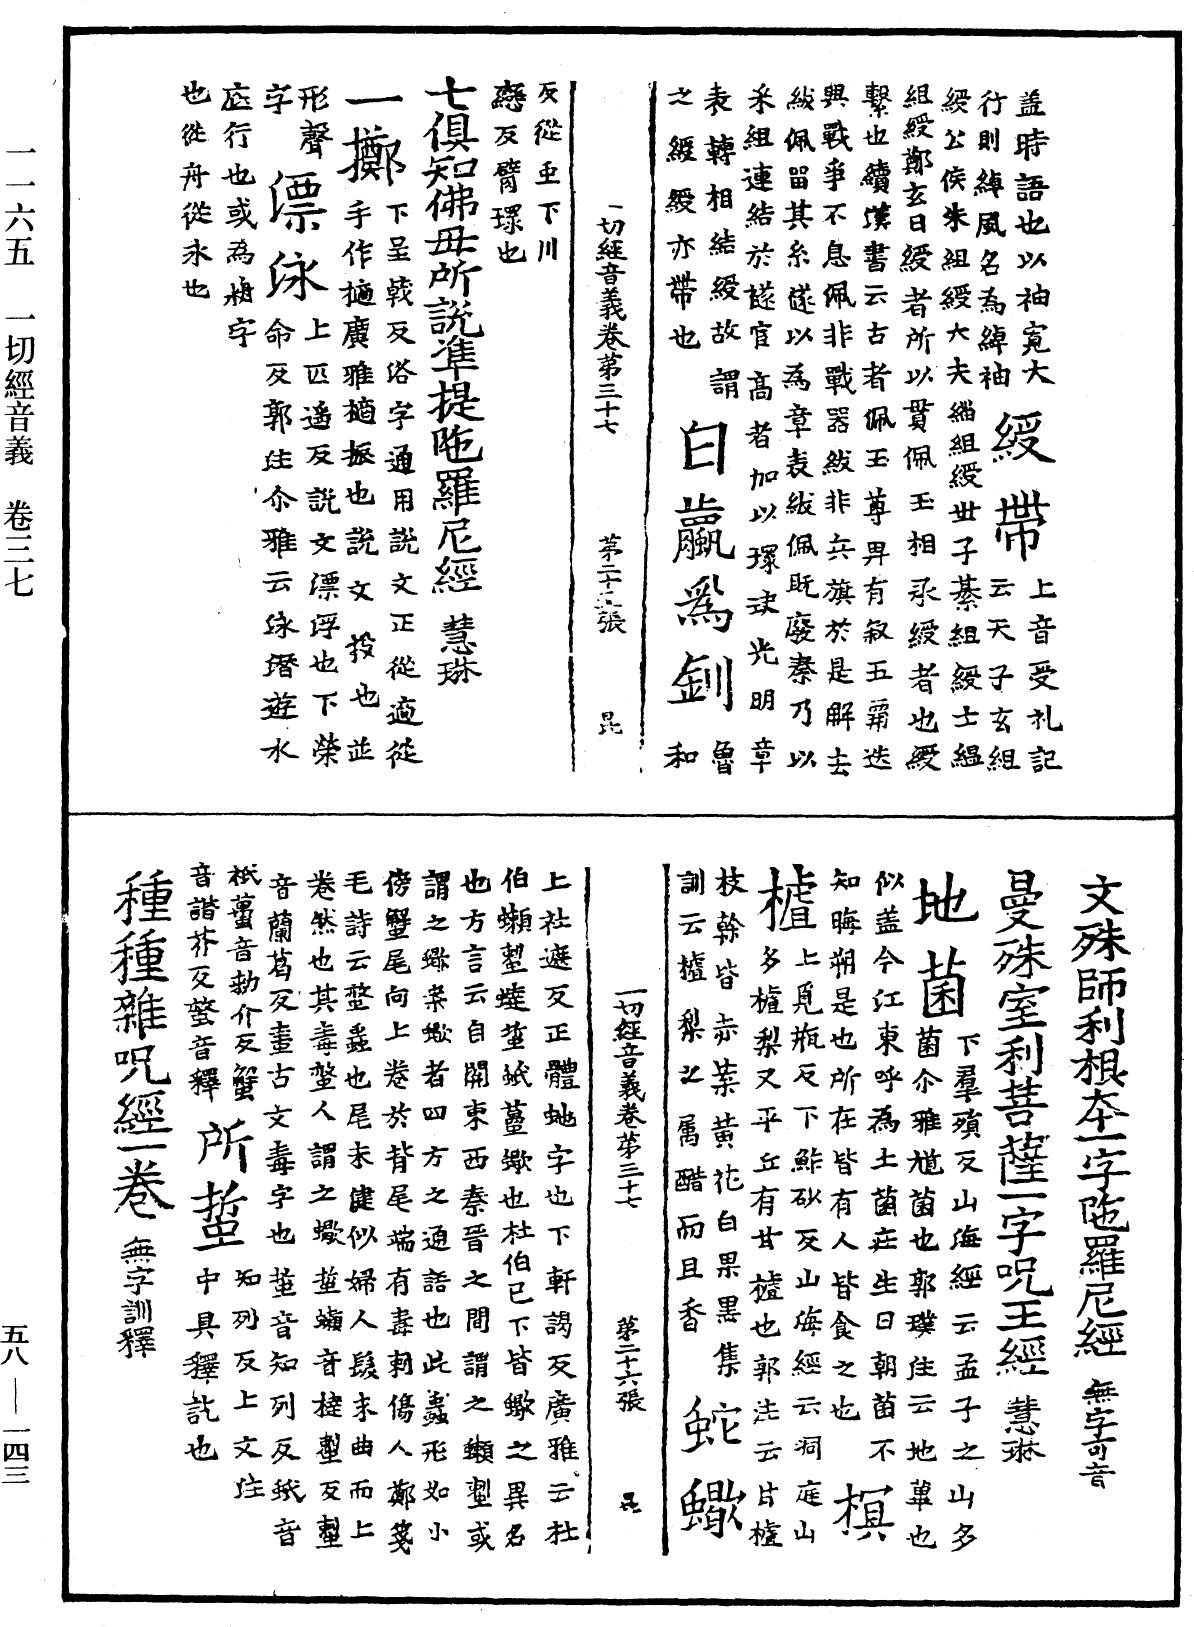 一一六五　一切經音義　卷三七
蓋時語也以袖寬大
行則綽風名為綽袖
綬帶
上音受礼記
云天子玄組
綬公侯朱組綬大夫緇組綬世子綦組綬士縕
組綬鄭玄曰綬者所以貫佩玉相承綬者也綬
繫也續漢書云古者佩玉尊卑有叙五霸迭
興戰爭不息佩非戰器紱非兵旗於是解去
紱佩留其糸遂以為章表紱佩既廢秦乃以
采組連結於𤪌官高者加以環玦光明章
表轉相結綬故謂
之綬綬亦帶也
白蠃為釧
魯
和
一切經音義卷第三十七　第二十五張　昆
反從玉下川
戀反臂環也
七俱知佛母所說准提陁羅尼經　慧琳
一擲
下呈戟反俗字通用說文正從適從
手作擿廣雅擿振也說文投也並
形聲
字
漂泳
上匹遙反說文漂浮也下榮
命反郭注尒雅云泳潛遊水
底行也或為𣴑字
也從舟從永也
文殊師利根本一字陁羅尼經　無字可音
曼殊室利菩薩一字呪王經　慧琳
地菌
下羣殞反山海經云孟子之山多
菌尒雅馗菌也郭璞注云地蕈也
似蓋今江東呼為土菌莊生曰朝菌不
知晦朔是也所在皆有人皆食之也
榠樝
上覓瓶反下鮓砂反山海經云洞庭山
多樝梨又平丘有甘樝也郭注云片樝
枝幹皆赤葉黃花白果黑集
訓云樝梨之屬醋而且香
蛇蠍
一切經音義卷第三十七　第二十六張　昆
上社遮反正體虵字也下軒謁反廣雅云杜
伯蠍䗍蛋蚳蠆蠍也杜伯已下皆蠍之異名
也方言云自關東西秦晉之間謂之蠍䗍或
謂之蠍案蠍者四方之通語也此蠚形如小
傍蟹尾向上卷於背尾端有毒刺傷人鄭箋
毛詩云螫蟲也尾末揵似婦人髮末曲而上
卷然也其毒螫人謂之蠍蛋蠍音
音蘭葛反畫古文毒字也蜇音知列反蚳音
祇蠆音勅介反蟹
音諧芥反螫音釋
所蜇
知列反上文注
中具釋訖也
種種雜呪經一卷　無字訓釋
五八—一四三